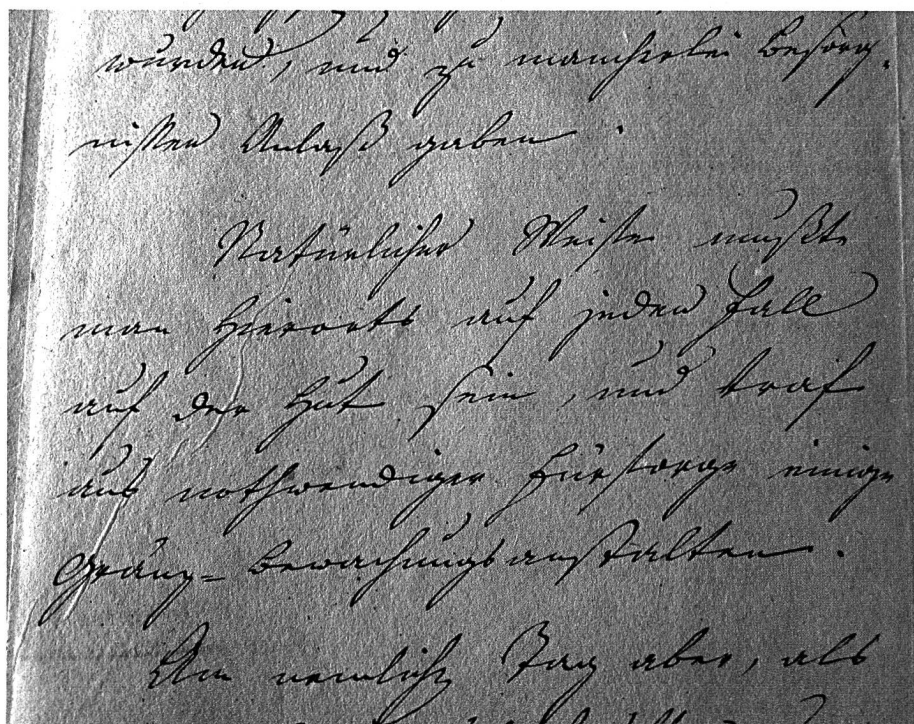 wurden, und zu mancherlei Besorg-
nissen Anlaß gaben.
Natürlicher Weise mußte
man hierorts auf jeden Fall
auf der Hut sein, und traf
aus nothwendiger Fürsorge einige
Gränz=Bewachungsanstalten.
Am nemlichen Tag aber, als